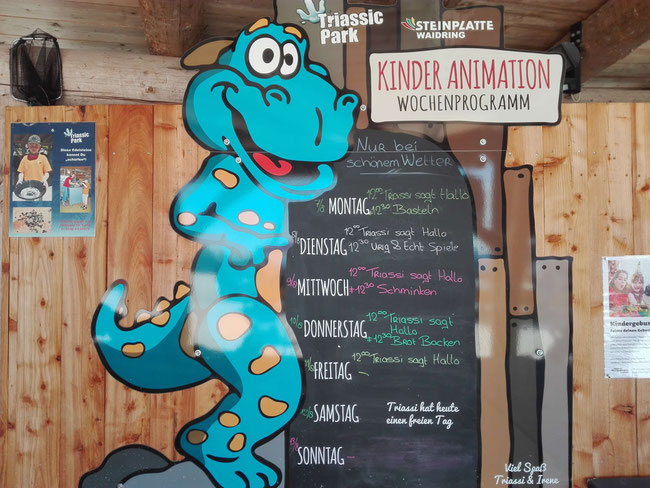 Triassic
Park
STEINPLATTE
WAIDRING
KINDER ANIMATION
WOCHENPROGRAMM
Triassic
Park
Nur bei
schönem Wetter
7/8 MONTAG 12⁰⁰ Triassi sagt Hallo
12³⁰ Basteln
DIENSTAG 12⁰⁰ Triassi sagt Hallo
12³⁰ Urig & Echt Spiele
9/8 MITTWOCH 12⁰⁰ Triassi sagt Hallo
+12³⁰ Schminken
10/8 DONNERSTAG 12⁰⁰ Triassi sagt
Hallo
+12³⁰ Brot Backen
11/8 FREITAG – 12⁰⁰ Triassi sagt Hallo
SAMSTAG Triassi hat heute
einen freien Tag
SONNTAG –
Viel Spaß
Triassi & Irene